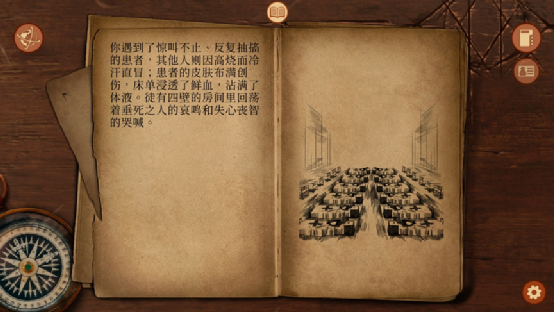 你遇到了惊叫不止、反复抽搐
的患者，其他人则因高烧而冷
汗直冒；患者的皮肤布满创
伤，床单浸透了鲜血，沾满了
体液。徒有四壁的房间里回荡
着垂死之人的哀鸣和失心丧智
的哭喊。